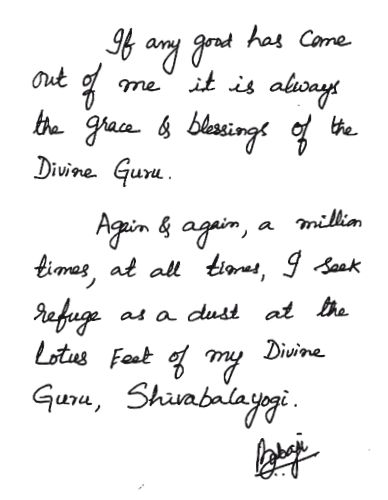 If any good has Come
out of me it is always
the grace & blessings of the
Divine Guru.
Again & again, a million
times, at all times, I seek
refuge as a dust at the
Lotus Feet of my Divine
Guru, Shivabalayogi.